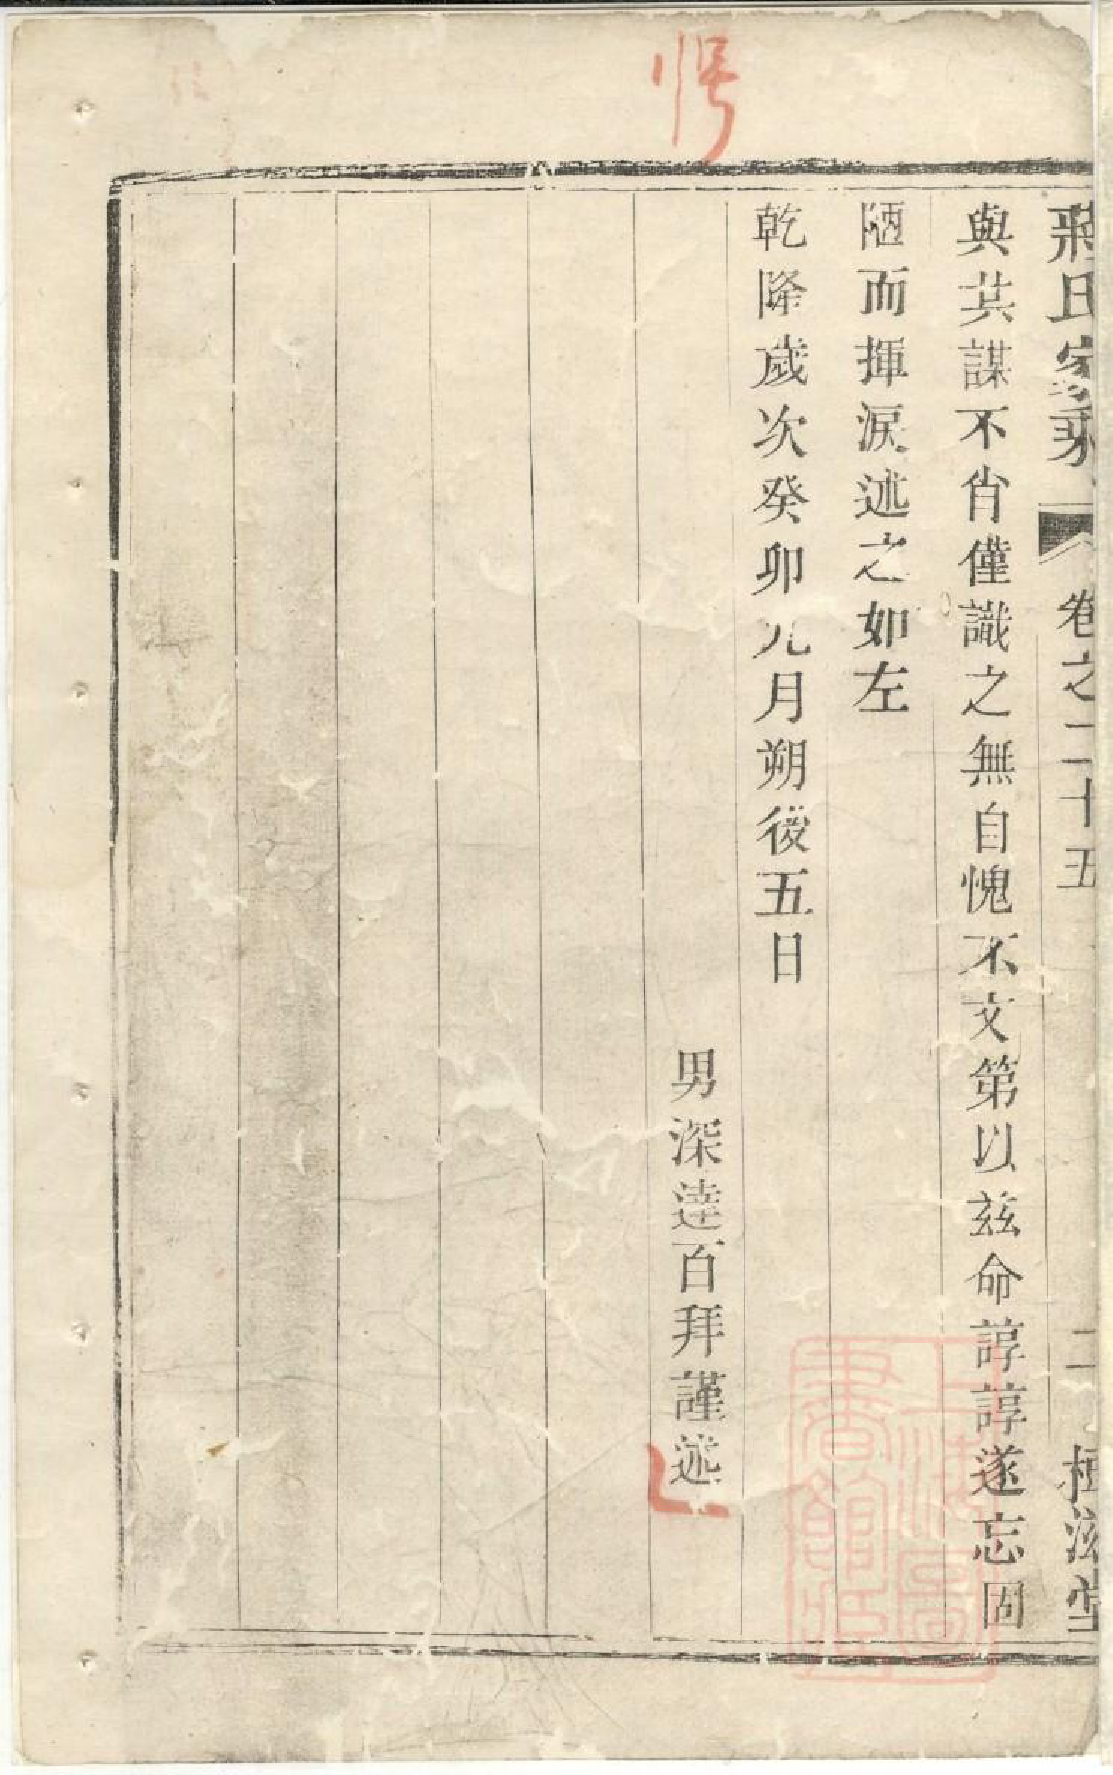 蔣氏家乘 卷之二十五 二 垣法堂
與共謀不肖僅識之無自愧不文第以茲命諄諄遂忘固
陋而揮淚述之如左
乾隆歲次癸卯九月朔後五日
男深達百拜謹述
上海圖
書館藏